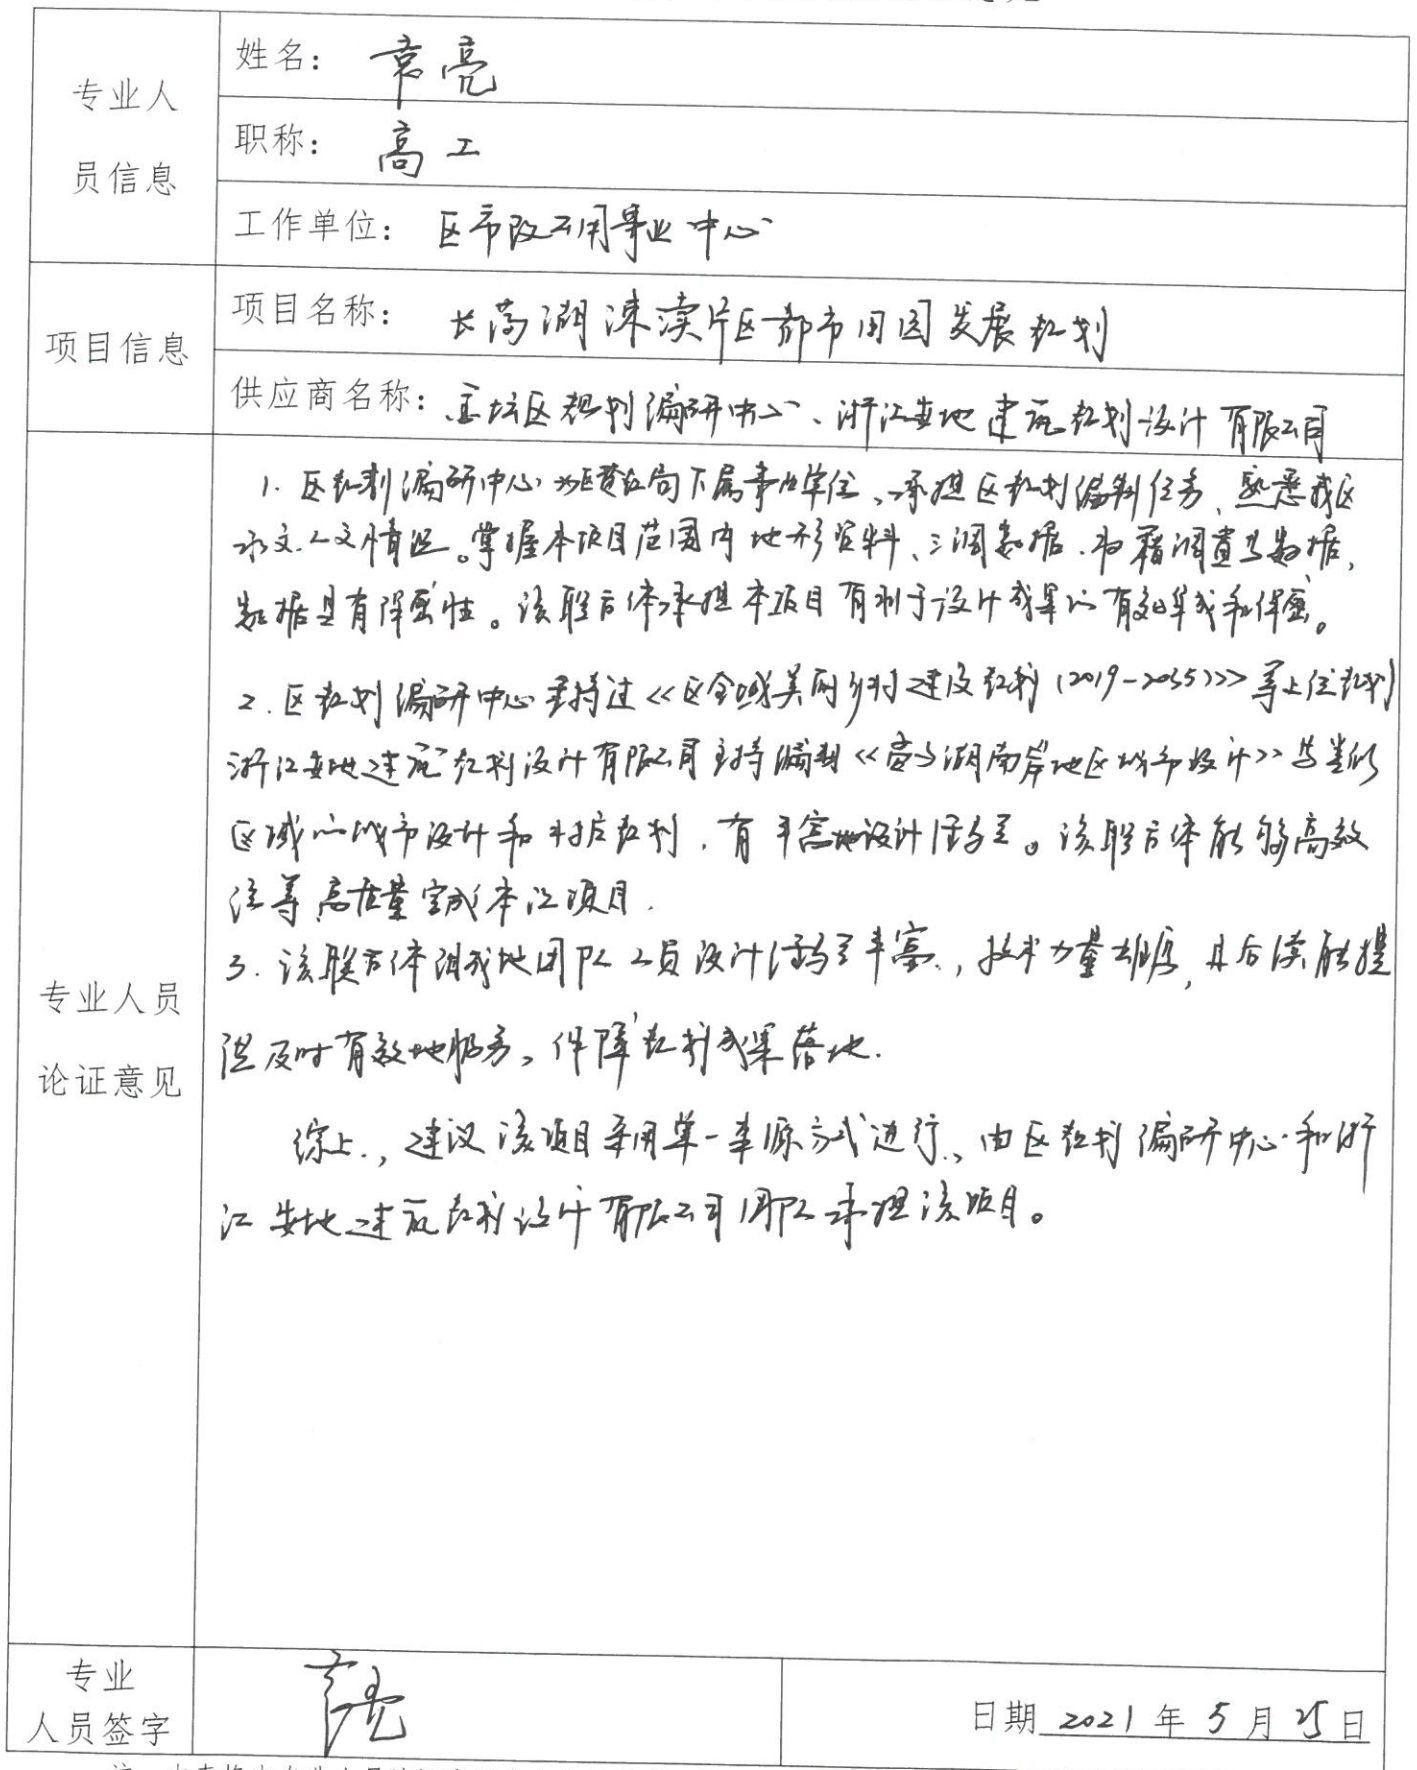 专业人
员信息
姓名: 袁亮
职称: 高工
工作单位: 区市政公用事业中心
项目信息
项目名称: 长荡湖涑渎片区都市田园发展规划
供应商名称: 金坛区规划编研中心、浙江安地建筑规划设计有限公司
专业人员
论证意见
1. 区规划编研中心为区资规局下属事业单位、承担区规划编制任务、熟悉我区
水文人文情况。掌握本项目范围内地形资料、三调数据、地籍调查等数据,
数据具有保密性。该联合体承担本项目有利于设计成果的有效集成和保密。
2. 区规划编研中心主持过《区全域美丽乡村建设规划(2019-2035)》等上位规划
浙江安地建筑规划设计有限公司主持编制《湖南岸地区城市设计》等类似
区域的城市设计和村庄规划,有丰富地设计经验。该联合体能够高效
高质量完成本次项目.
3. 该联合体团队人员设计经验丰富,技术力量雄厚,且后续能提
供及时有效地服务,保障规划成果落地.
综上,建议该项目采用单一来源方式进行,由区规划编研中心和浙
江安地建筑规划设计有限公司团队承担该项目。
专业
人员签字
袁亮
日期 2021 年 5 月 25 日